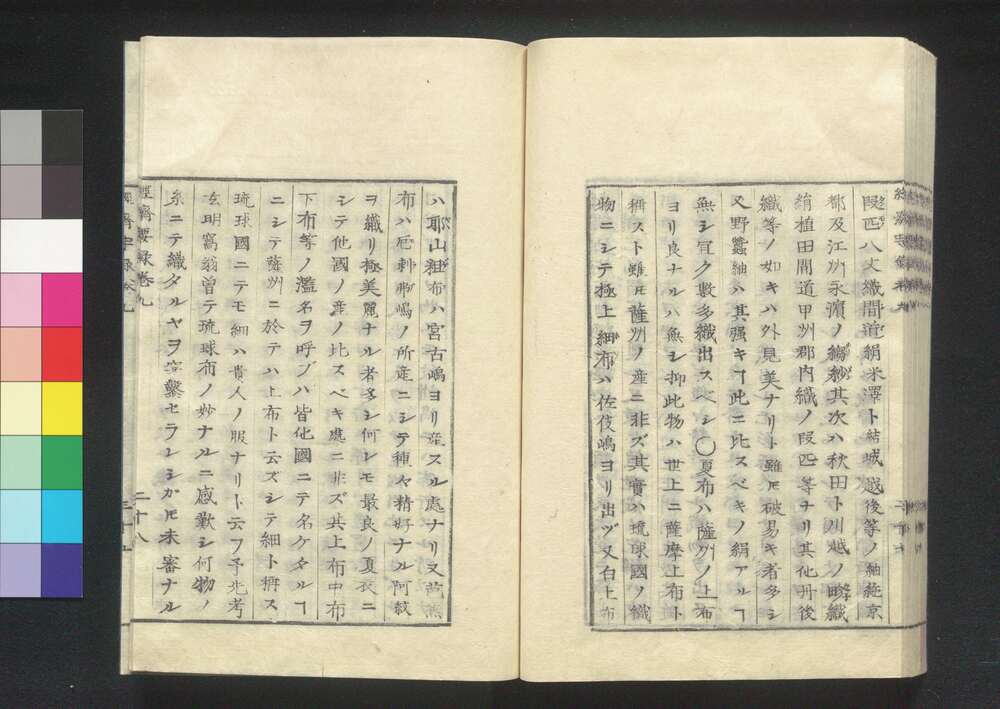 段匹八丈織間道絹米澤ト結城越後等ノ紬絁京
都及江州永濱ノ縐紗其次ハ秋田ト川越ノ畯織
絹植田間道甲州郡内織ノ段匹等ナリ其他丹後
織等ノ如キハ外見美ナリト雖𪜈破易キ者多シ
又野蠶紬ハ其强キヿ此ニ比スベキノ絹アルヿ
無シ宜ク數多織出スベシ〇夏布ハ薩州ノ上布
ヨリ良ナルハ無シ抑此物ハ世上ニ薩摩上布ト
稱スト雖𪜈薩州ノ産ニ非ズ其實ハ琉球國ノ織
物ニシテ極上細布ハ佐伎嶋ヨリ出ヅ又白上布
ハ耶山粗布ハ宮古嶋ヨリ産スル處ナリ又芭蕉
布ハ嶋ノ所産ニシテ種々精好ナル阿
ヲ織リ極美麗ナル者多シ何レモ最良ノ夏衣ニ
シテ他國ノ産ノ比スベキ處ニ非ズ其上布中布
下布等ノ濫名ヲ呼ブハ皆他國ニテ名ケタルヿ
ニシテ薩州ニ於テハ上布ト云ズシテ細ト稱ス
琉球國ニテモ細ハ貴人ノ服ナリト云フ予北考
玄明窩翁曾テ琉球布ノ妙ナルニ感歎シ何物ノ
糸ニテ織タルヤヲ穿鑿セラレシカ𪜈未審ナル
經濟要録卷九
二十八